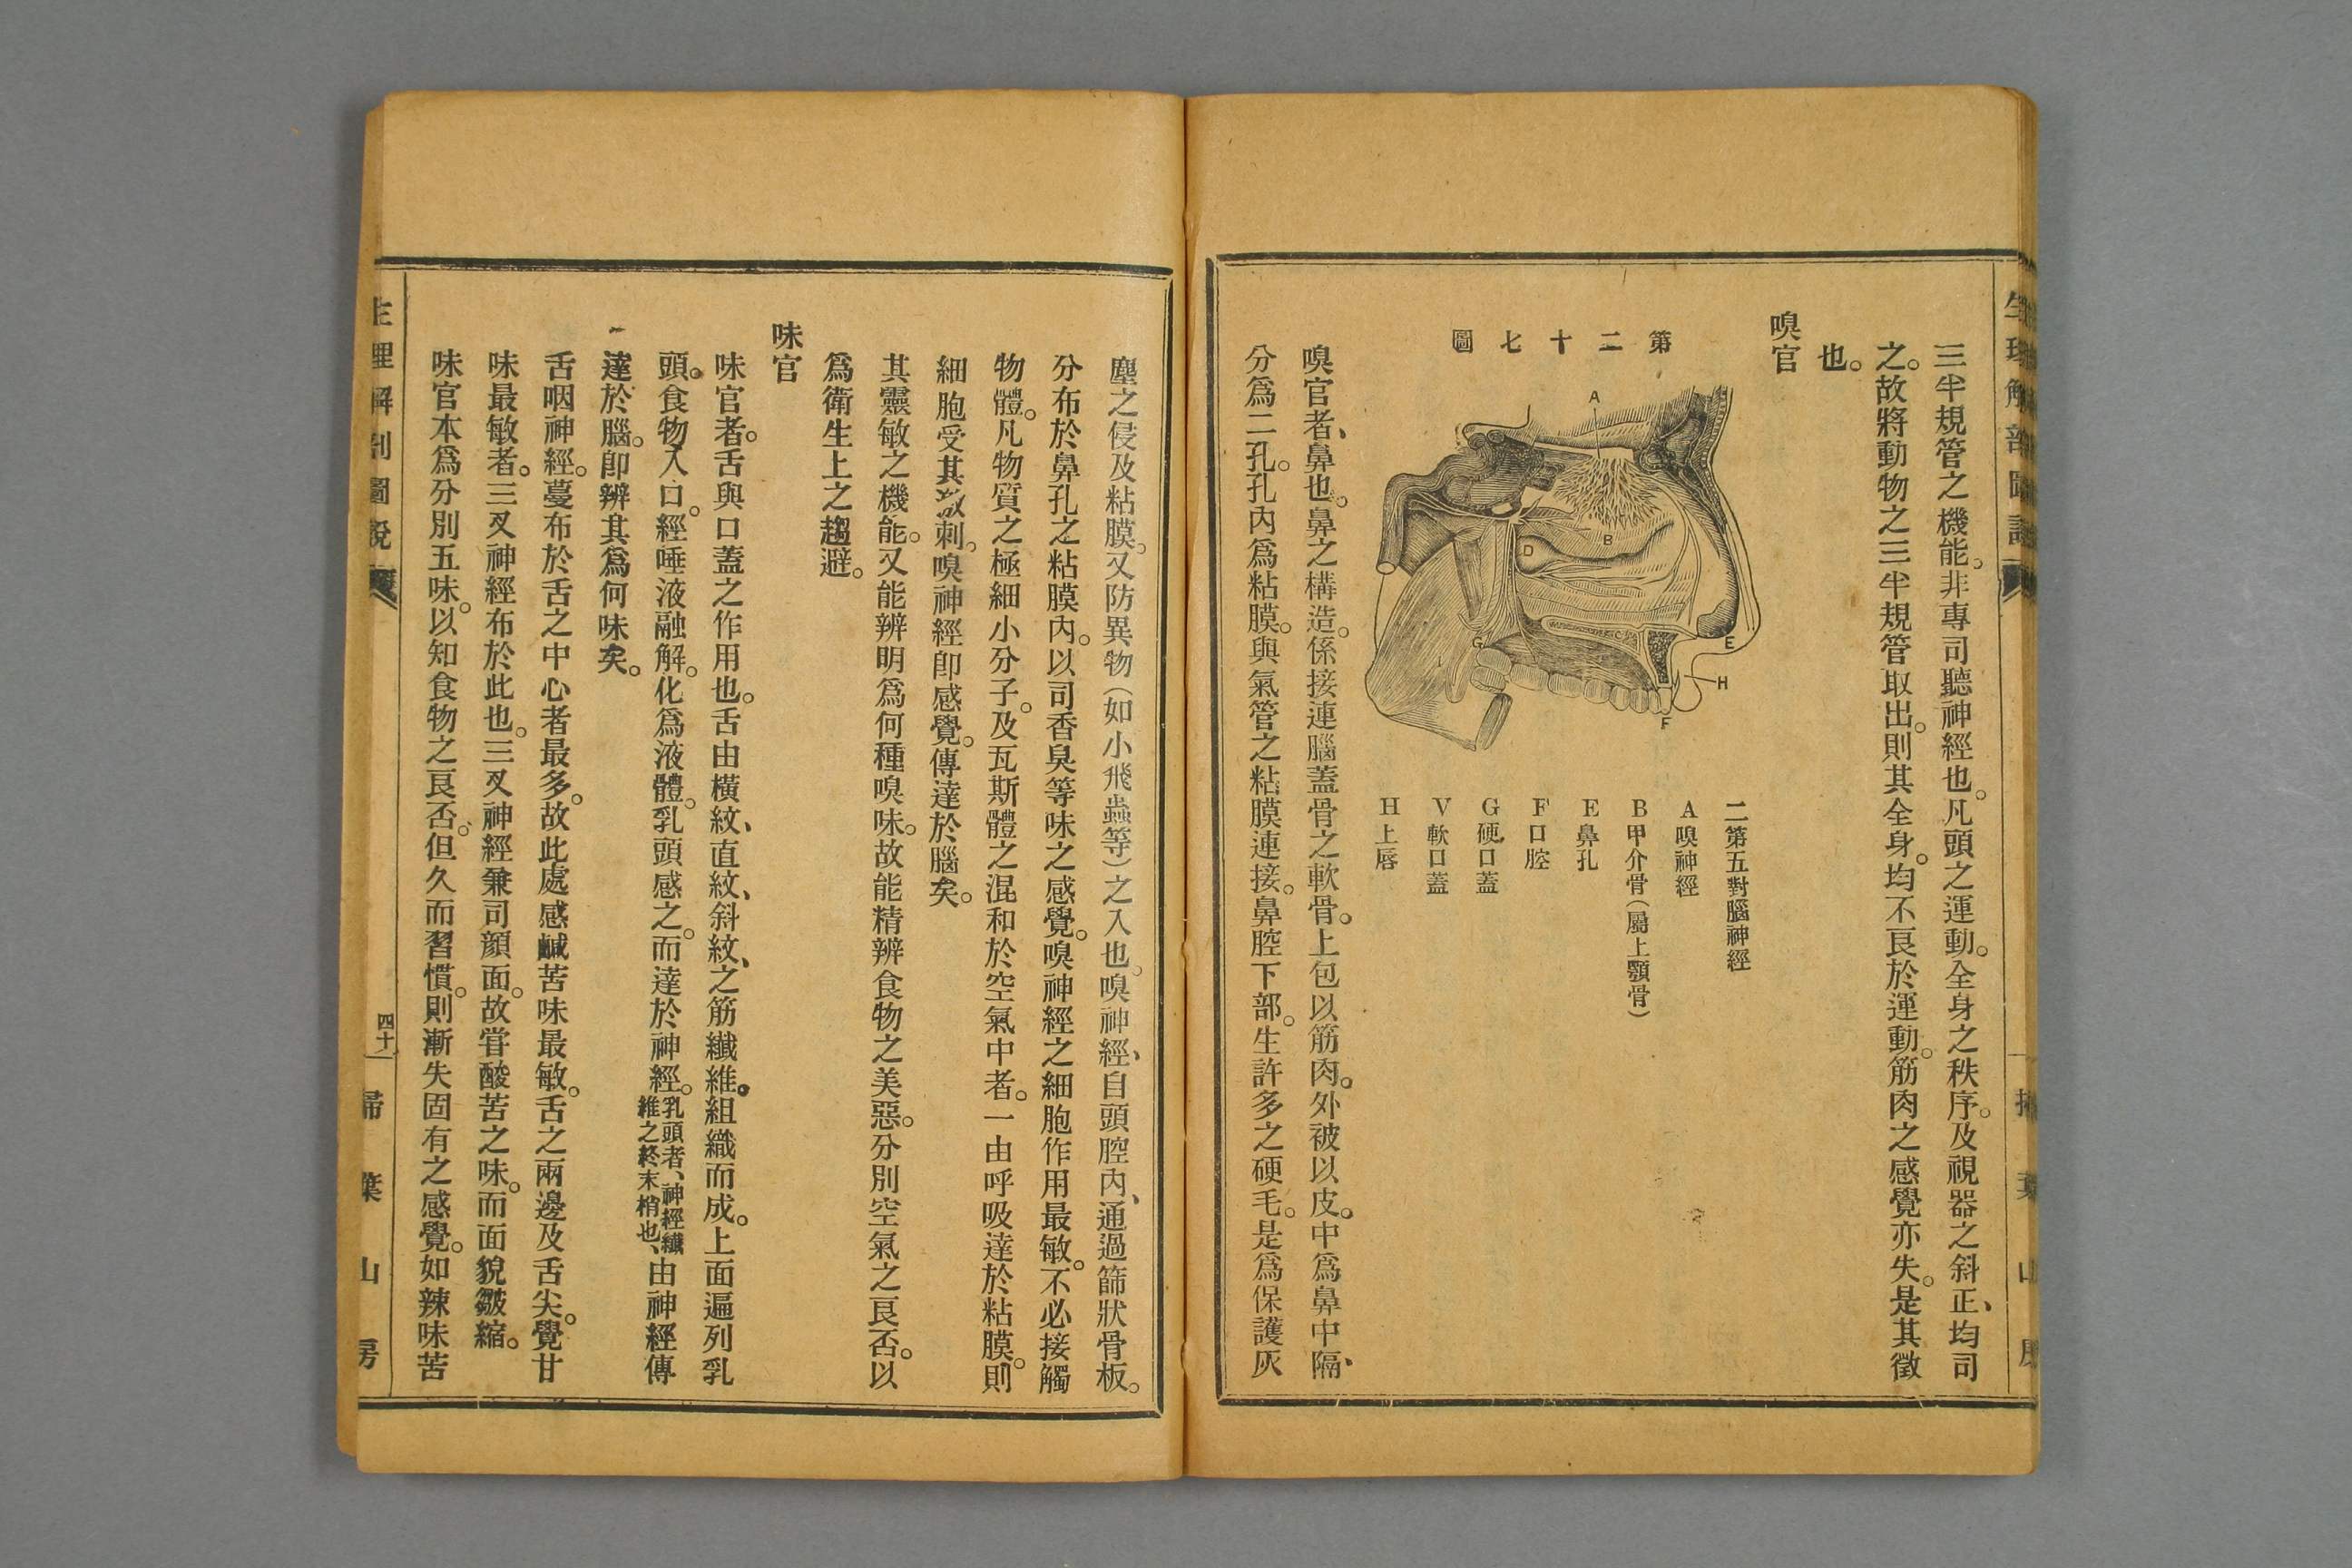 三半規管之機能。非專司聽神經也。凡頭之運動。全身之秩序。及視器之斜正、均司
之。故將動物之三半規管取出。則其全身。均不良於運動。筋肉之感覺亦失。是其徵
也。
嗅官
第二十七圖
A
B
D
C
E
G
H
F
I
二第五對腦神經
A 嗅神經
B 甲介骨（屬上顎骨）
E 鼻孔
F 口腔
G 硬口蓋
V 軟口蓋
H 上唇
嗅官者、鼻也。鼻之構造。係接連腦蓋骨之軟骨。上包以筋肉。外被以皮。中爲鼻中隔、
分爲二孔。孔內爲粘膜。與氣管之粘膜連接。鼻腔下部。生許多之硬毛。是爲保護灰
塵之侵及粘膜。又防異物（如小飛蟲等）之入也。嗅神經、自頭腔內、通過篩狀骨板。
分布於鼻孔之粘膜內。以司香臭等味之感覺。嗅神經之細胞作用最敏。不必接觸
物體。凡物質之極細小分子。及瓦斯體之混和於空氣中者。一由呼吸達於粘膜。則
細胞受其激刺。嗅神經卽感覺。傳達於腦矣。
其靈敏之機能。又能辨明爲何種嗅味。故能精辨食物之美惡。分別空氣之良否。以
爲衛生上之趨避。
味官
味官者。舌與口蓋之作用也。舌由橫紋、直紋、斜紋、之筋纖維。組織而成。上面遍列乳
頭。食物入口。經唾液融解。化爲液體。乳頭感之。而達於神經。乳頭者、神經纖維之終末梢也、由神經傳
達於腦。卽辨其爲何味矣。
舌咽神經。蔓布於舌之中心者最多。故此處感鹹苦味最敏。舌之兩邊及舌尖。覺甘
味最敏者。三叉神經布於此也。三叉神經兼司顏面。故嘗酸苦之味。而面貌皺縮。
味官本爲分別五味。以知食物之良否。但久而習慣。則漸失固有之感覺。如辣味苦
生理解剖圖說
四十
掃葉山房